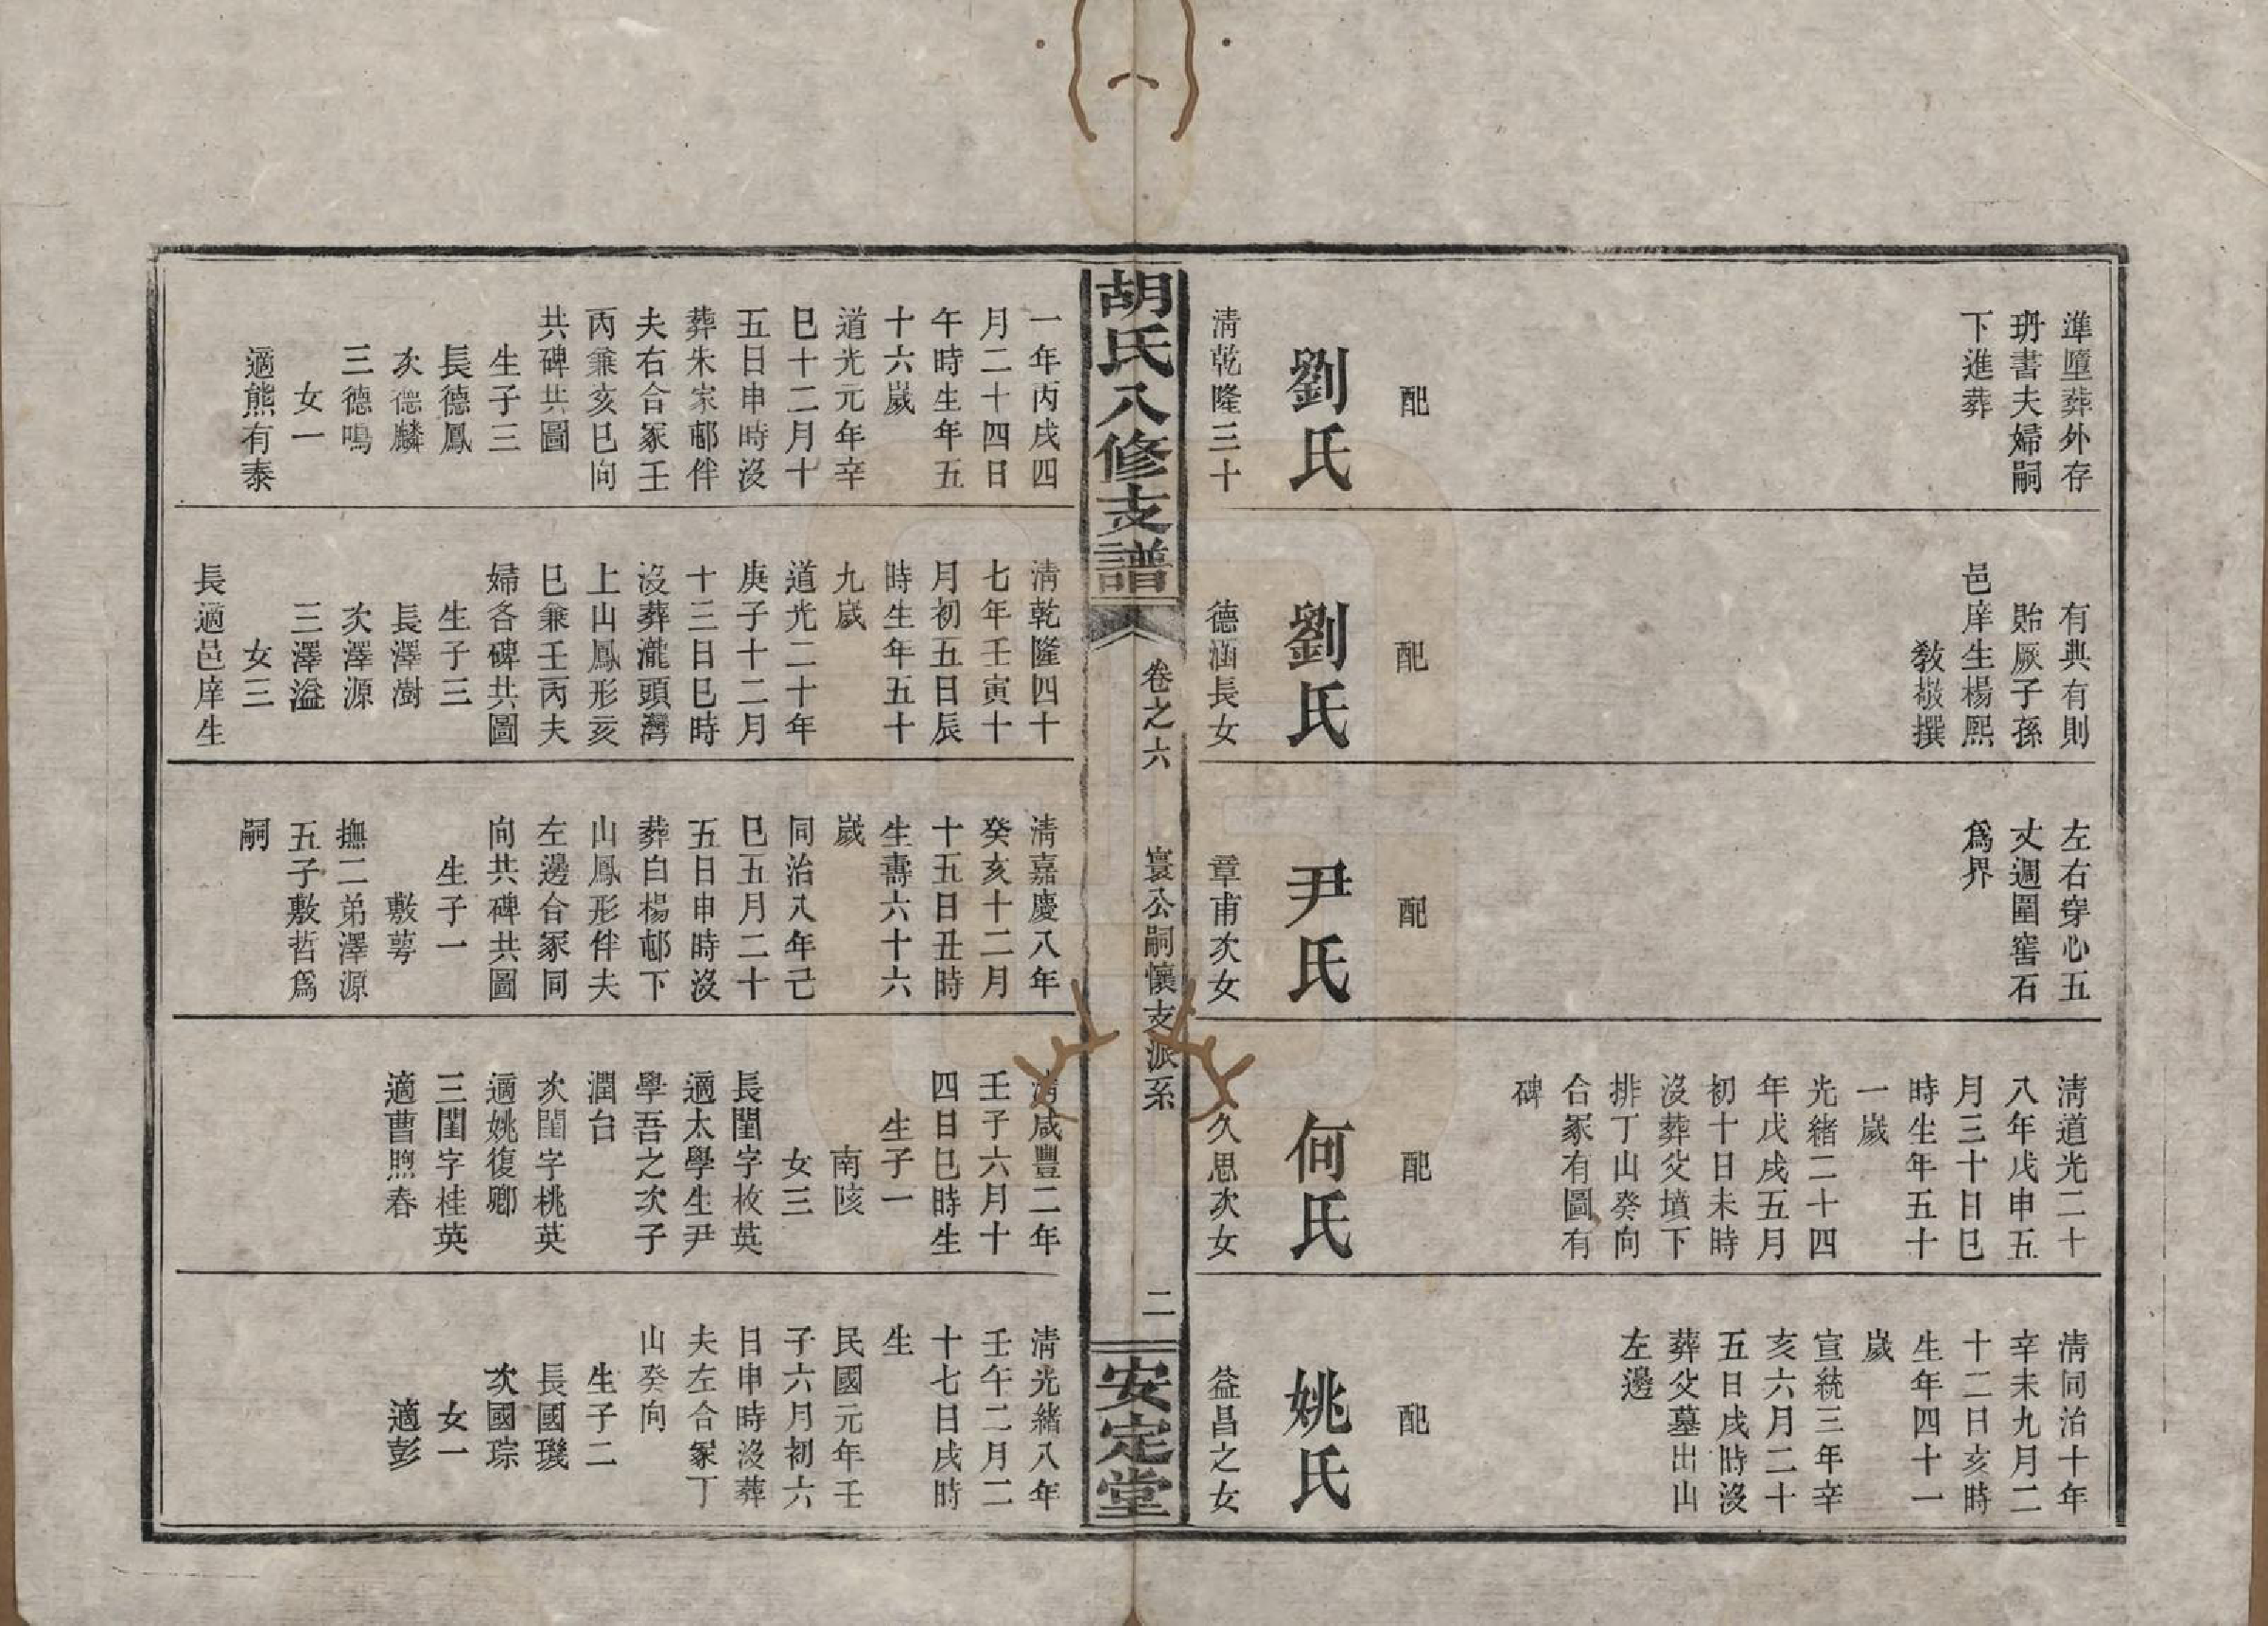 準墮葬外存
玬書夫婦嗣
下進葬
配
劉氏
清乾隆三十
有典有則
貽厥子孫
邑庠生楊熙
敎敬撰
配
劉氏
德涵長女
左右穿心五
丈週圍窖石
爲界
配
尹氏
章甫次女
清道光二十
八年戊申五
月三十日巳
時生年五十
一歲
光緒二十四
年戊戌五月
初十日未時
沒葬父墳下
排丁山癸向
合冢有圖有
碑
配
何氏
久思次女
清同治十年
辛未九月二
十二日亥時
生年四十一
歲
宣統三年辛
亥六月二十
五日戌時沒
葬父墓出山
左邊
配
姚氏
益昌之女
胡氏八修支譜
卷之六
寰公嗣懷支派系
二
安定堂
一年丙戌四
月二十四日
午時生年五
十六歲
道光元年辛
巳十二月十
五日申時沒
葬朱家邨伴
夫右合冢壬
丙兼亥巳向
共碑共圖
生子三
長德鳳
次德麟
三德鳴
女一
適熊有泰
清乾隆四十
七年壬寅十
月初五日辰
時生年五十
九歲
道光二十年
庚子十二月
十三日巳時
沒葬瀧頭灣
上山鳳形亥
巳兼壬丙夫
婦各碑共圖
生子三
長澤澍
次澤源
三澤溢
女三
長適邑庠生
清嘉慶八年
癸亥十二月
十五日丑時
生壽六十六
歲
同治八年己
巳五月二十
五日申時沒
葬白楊邨下
山鳳形伴夫
左邊合冢同
向共碑共圖
生子一
敷蕚
撫二弟澤源
五子敷哲爲
嗣
清咸豐二年
壬子六月十
四日巳時生
生子一
南陔
女三
長閨字枚英
適太學生尹
學吾之次子
潤台
次閨字桃英
適姚復卿
三閨字桂英
適曹煦春
清光緒八年
壬午二月二
十七日戌時
生
民國元年壬
子六月初六
日申時沒葬
夫左合冢丁
山癸向
生子二
長國璣
次國琮
女一
適彭